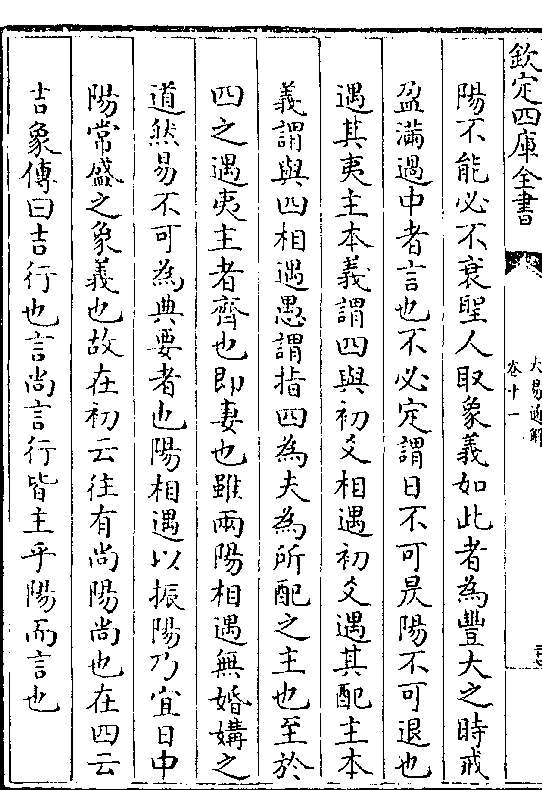 欽定四庫全書
大易通解
卷十一
陽不能必不衰聖人取象義如此者為豐大之時戒
盈滿過中者言也不必定謂日不可昃陽不可退也
遇其夷主本義謂四與初爻相遇初爻遇其配主本
義謂與四相遇愚謂指四為夫為所配之主也至於
四之遇夷主者齊也即妻也雖兩陽相遇無婚媾之
道然易不可為典要者也陽相遇以振陽乃宜日中
陽常盛之象義也故在初云往有尚陽尚也在四云
吉象傳曰吉行也言尚言行皆主乎陽而言也